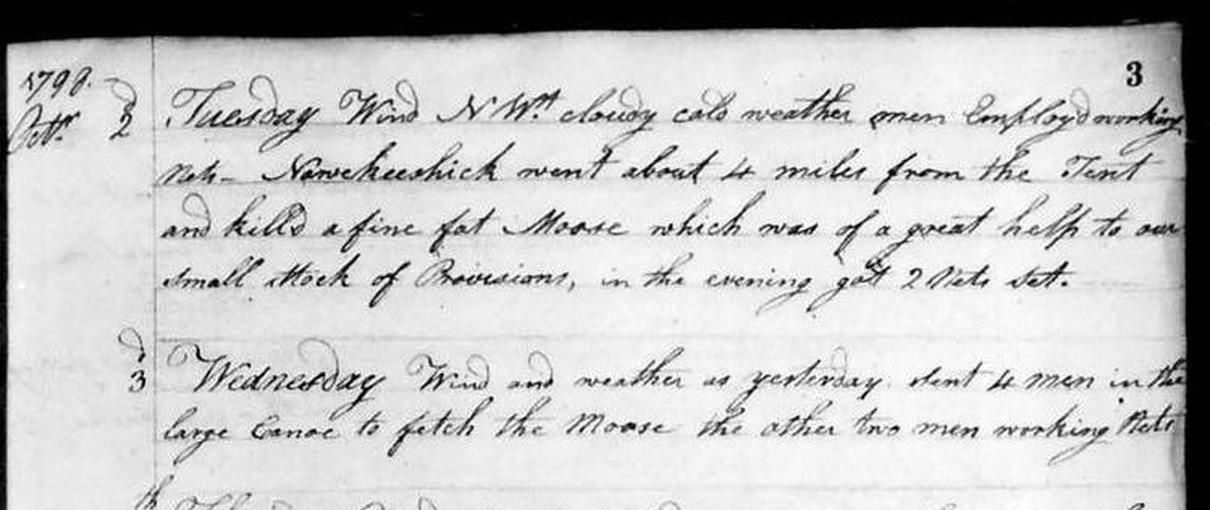 3
1798.
Octr. 2d Tuesday Wind N Wt. cloudy cold weather men Employd working
Nets - Nawekeeshick went about 4 miles from the Tent
and killd a fine fat Moose which was of a great help to our
small stock of Provisions, in the evening got 2 Nets set.
3d Wednesday Wind and weather as yesterday. sent 4 men in the
large Canoe to fetch the Moose the other two men working Nets
th